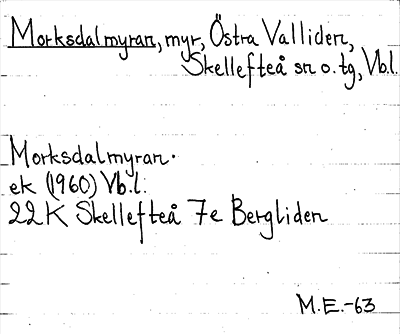 Morksdalmyran, myr, Östra Valliden,
Skellefteå sn o. tg, Vb.l.
Morksdalmyran.
ek (1960) Vb.l:
22K Skellefteå 7e Bergliden
M.E.-63